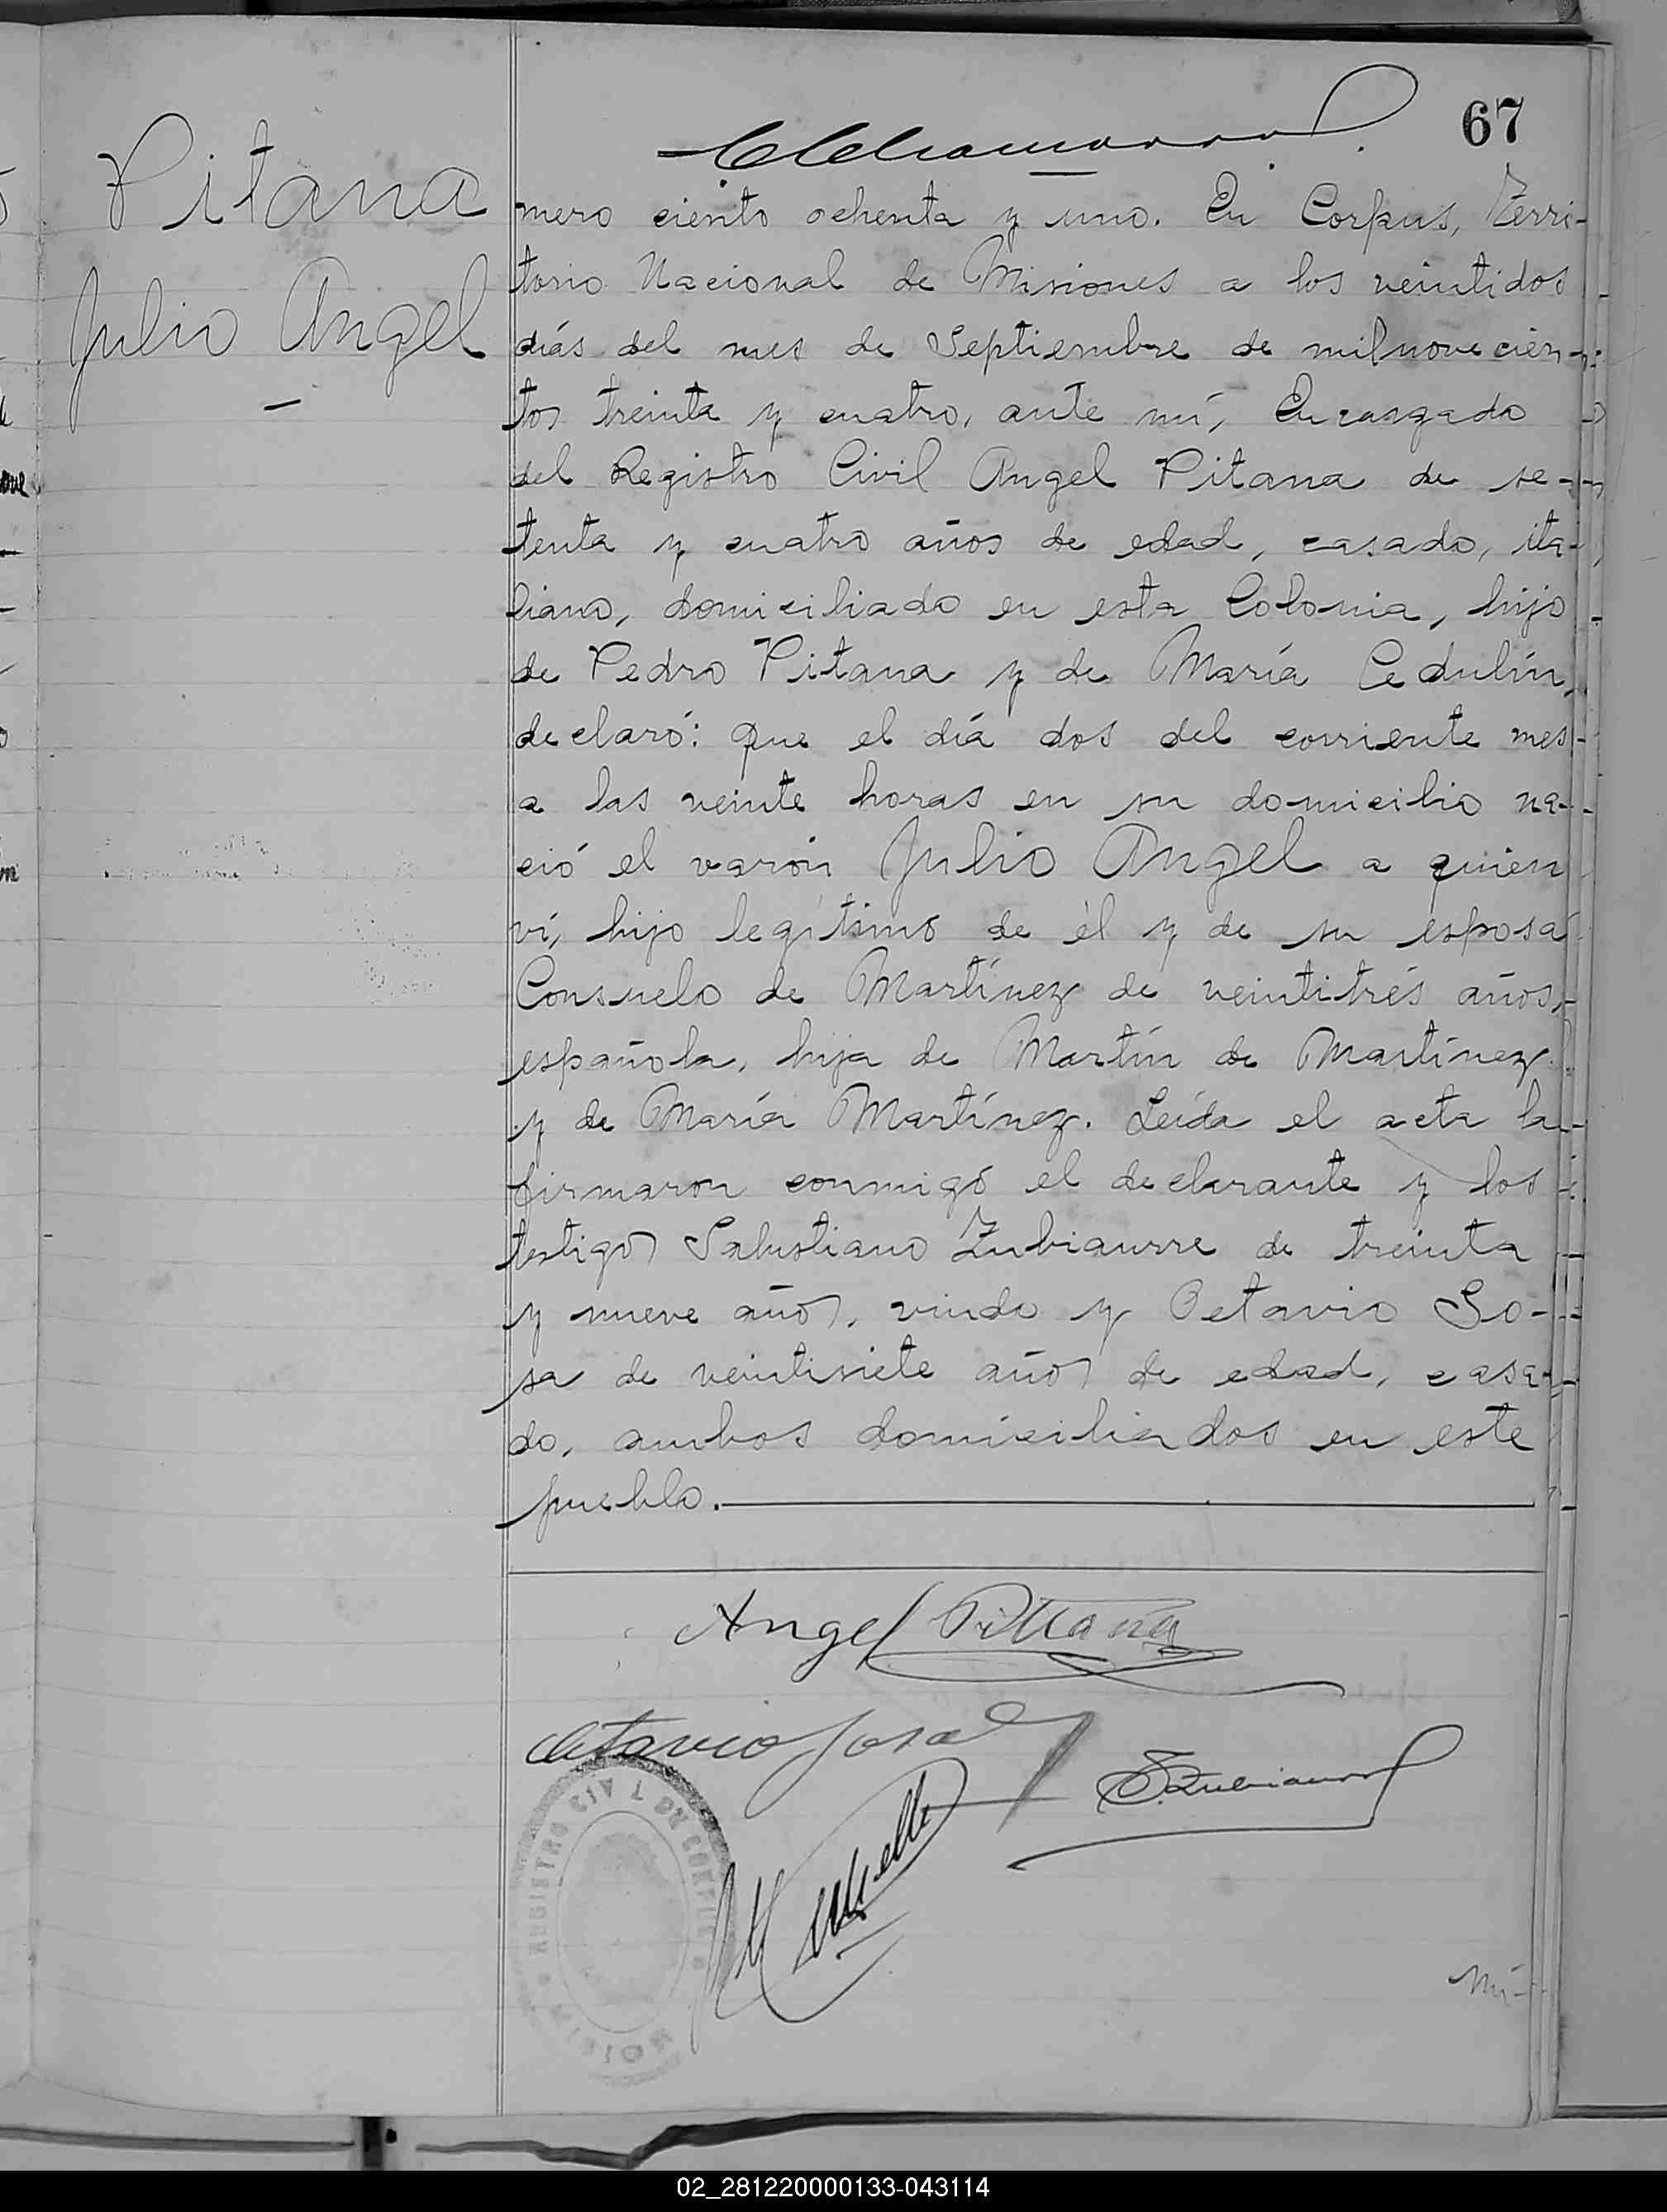 67
Pitana
Julio Angel
mero ciento ochenta y uno. En Corpus, Terri-
torio Nacional de Misiones a los veintidos
días del mes de Septiembre de mil novecien-
tos treinta y cuatro, ante mí, Encargado
del Registro Civil Angel Pitana de se-
tenta y cuatro años de edad, casado, ita-
liano, domiciliado en esta Colonia, hijo
de Pedro Pitana y de María Cedulín,
declaró: que el día dos del corriente mes
a las veinte horas en su domicilio na-
ció el varón Julio Angel a quien
ví, hijo legítimo de él y de su esposa
Consuelo de Martínez de veintitrés años,
española, hija de Martín de Martínez
y de María Martínez. Leída el acta la
firmaron conmigo el declarante y los
testigos Salustiano Zubiaurre de treinta
y nueve años, viudo y Octavio So-
sa de veintisiete años de edad, casa-
do, ambos domiciliados en este
pueblo.
Angel Pittana
Octavio Sosa
S. Zubiaurre
REGISTRO CIVIL DE CORPUS
mí-
02_281220000133-043114